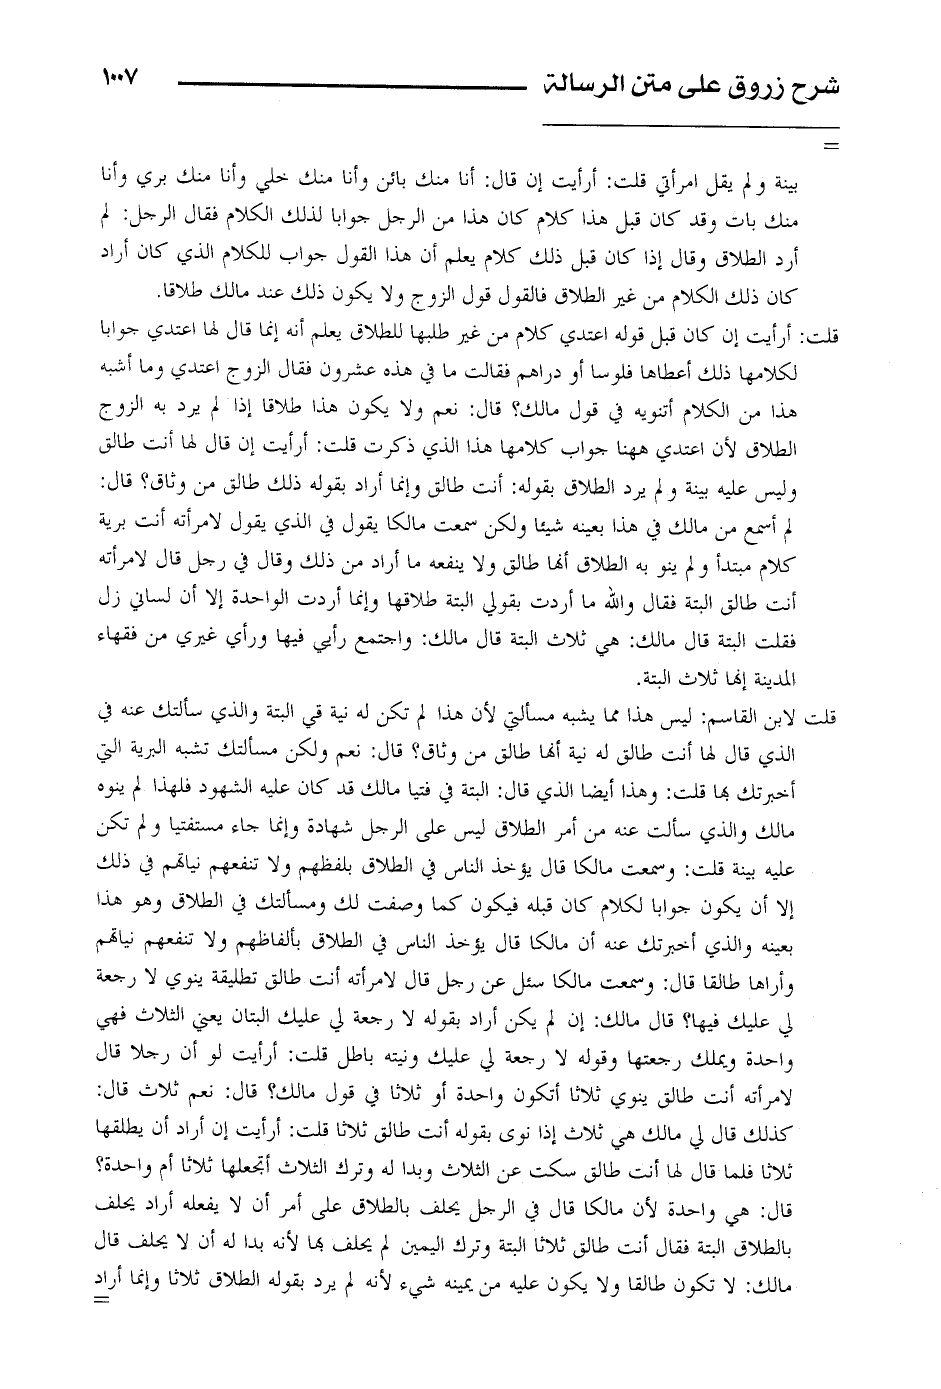 شرح زروق على متن الرسالة ١٠٠٧
=
بينة ولم يقل امرأتي قلت: أرأيت إن قال: أنا منك بائن وأنا منك خلي وأنا منك بري وأنا
منك بات وقد كان قبل هذا كلام كان هذا من الرجل جوابا لذلك الكلام فقال الرجل: لم
أرد الطلاق وقال إذا كان قبل ذلك كلام يعلم أن هذا القول جواب للكلام الذي كان أراد
كان ذلك الكلام من غير الطلاق فالقول قول الزوج ولا يكون ذلك عند مالك طلاقا.
قلت: أرأيت إن كان قبل قوله اعتدي كلام من غير طلبها للطلاق يعلم أنه إنما قال لها اعتدي جوابا
لكلامها ذلك أعطاها فلوسا أو دراهم فقالت ما في هذه عشرون فقال الزوج اعتدي وما أشبه
هذا من الكلام أتنويه في قول مالك؟ قال: نعم ولا يكون هذا طلاقا إذا لم يرد به الزوج
الطلاق لأن اعتدي ههنا جواب كلامها هذا الذي ذكرت قلت: أرأيت إن قال لها أنت طالق
وليس عليه بينة ولم يرد الطلاق بقوله: أنت طالق وإنما أراد بقوله ذلك طالق من وثاق؟ قال:
لم أسمع من مالك في هذا بعينه شيئا ولكن سمعت مالكا يقول في الذي يقول لامرأته أنت برية
كلام مبتدأ ولم ينو به الطلاق أنها طالق ولا ينفعه ما أراد من ذلك وقال في رجل قال لامرأته
أنت طالق البتة فقال والله ما أردت بقولي البتة طلاقها وإنما أردت الواحدة إلا أن لساني زل
فقلت البتة قال مالك: هي ثلاث البتة قال مالك: واجتمع رأيي فيها ورأي غيري من فقهاء
المدينة إنها ثلاث البتة.
قلت لابن القاسم: ليس هذا مما يشبه مسألتي لأن هذا لم تكن له نية قي البتة والذي سألتك عنه في
الذي قال لها أنت طالق له نية أنها طالق من وثاق؟ قال: نعم ولكن مسألتك تشبه البرية التي
أخبرتك بها قلت: وهذا أيضا الذي قال: البتة في فتيا مالك قد كان عليه الشهود فلهذا لم ينوه
مالك والذي سألت عنه من أمر الطلاق ليس على الرجل شهادة وإنما جاء مستفتيا ولم تكن
عليه بينة قلت: وسمعت مالكا قال يؤخذ الناس في الطلاق بلفظهم ولا تنفعهم نياتهم في ذلك
إلا أن يكون جوابا لكلام كان قبله فيكون كما وصفت لك ومسألتك في الطلاق وهو هذا
بعينه والذي أخبرتك عنه أن مالكا قال يؤخذ الناس في الطلاق بألفاظهم ولا تنفعهم نياتهم
وأراها طالقا قال: وسمعت مالكا سئل عن رجل قال لامرأته أنت طالق تطليقة ينوي لا رجعة
لي عليك فيها؟ قال مالك: إن لم يكن أراد بقوله لا رجعة لي عليك البتان يعني الثلاث فهي
واحدة ويملك رجعتها وقوله لا رجعة لي عليك ونيته باطل قلت: أرأيت لو أن رجلا قال
لامرأته أنت طالق ينوي ثلاثا أتكون واحدة أو ثلاثا في قول مالك؟ قال: نعم ثلاث قال:
كذلك قال لي مالك هي ثلاث إذا نوى بقوله أنت طالق ثلاثا قلت: أرأيت إن أراد أن يطلقها
ثلاثا فلما قال لها أنت طالق سكت عن الثلاث وبدا له وترك الثلاث أتجعلها ثلاثا أم واحدة؟
قال: هي واحدة لأن مالكا قال في الرجل يحلف بالطلاق على أمر أن لا يفعله أراد يحلف
بالطلاق البتة فقال أنت طالق ثلاثا البتة وترك اليمين لم يحلف بها لأنه بدا له أن لا يحلف قال
مالك: لا تكون طالقا ولا يكون عليه من يمينه شيء لأنه لم يرد بقوله الطلاق ثلاثا وإنما أراد
=